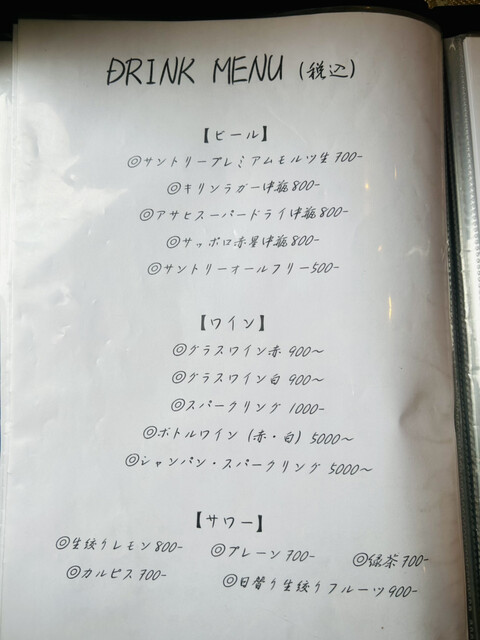 DRINK MENU (税込)
【ビール】
◎サントリープレミアムモルツ生 700-
◎キリンラガー中瓶 800-
◎アサヒスーパードライ中瓶 800-
◎サッポロ赤星中瓶 800-
◎サントリーオールフリー 500-
【ワイン】
◎グラスワイン赤 900〜
◎グラスワイン白 900〜
◎スパークリング 1000-
◎ボトルワイン (赤・白) 5000〜
◎シャンパン・スパークリング 5000〜
【サワー】
◎生絞りレモン 800- ◎プレーン 700- ◎緑茶 700-
◎カルピス 700- ◎日替り生絞りフルーツ 900-